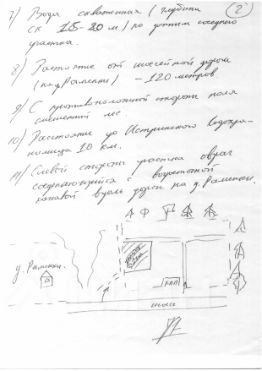 2
7) Вода скважинная (глубина
ск 15-20 м) по данным соседнего
участка.
8) Расстояние от шоссейной дороги
(на д. Раменки) - 120 метров
9) С противоположной стороны поля
смешенный лес
10) Расстояние до Истринского водохра-
нилища 10 км.
11) С левой стороны участка овраг
соединяющийся с водосточной
канавой вдоль дороги на д. Раменки.
д. Раменки.
КПП
шоссе